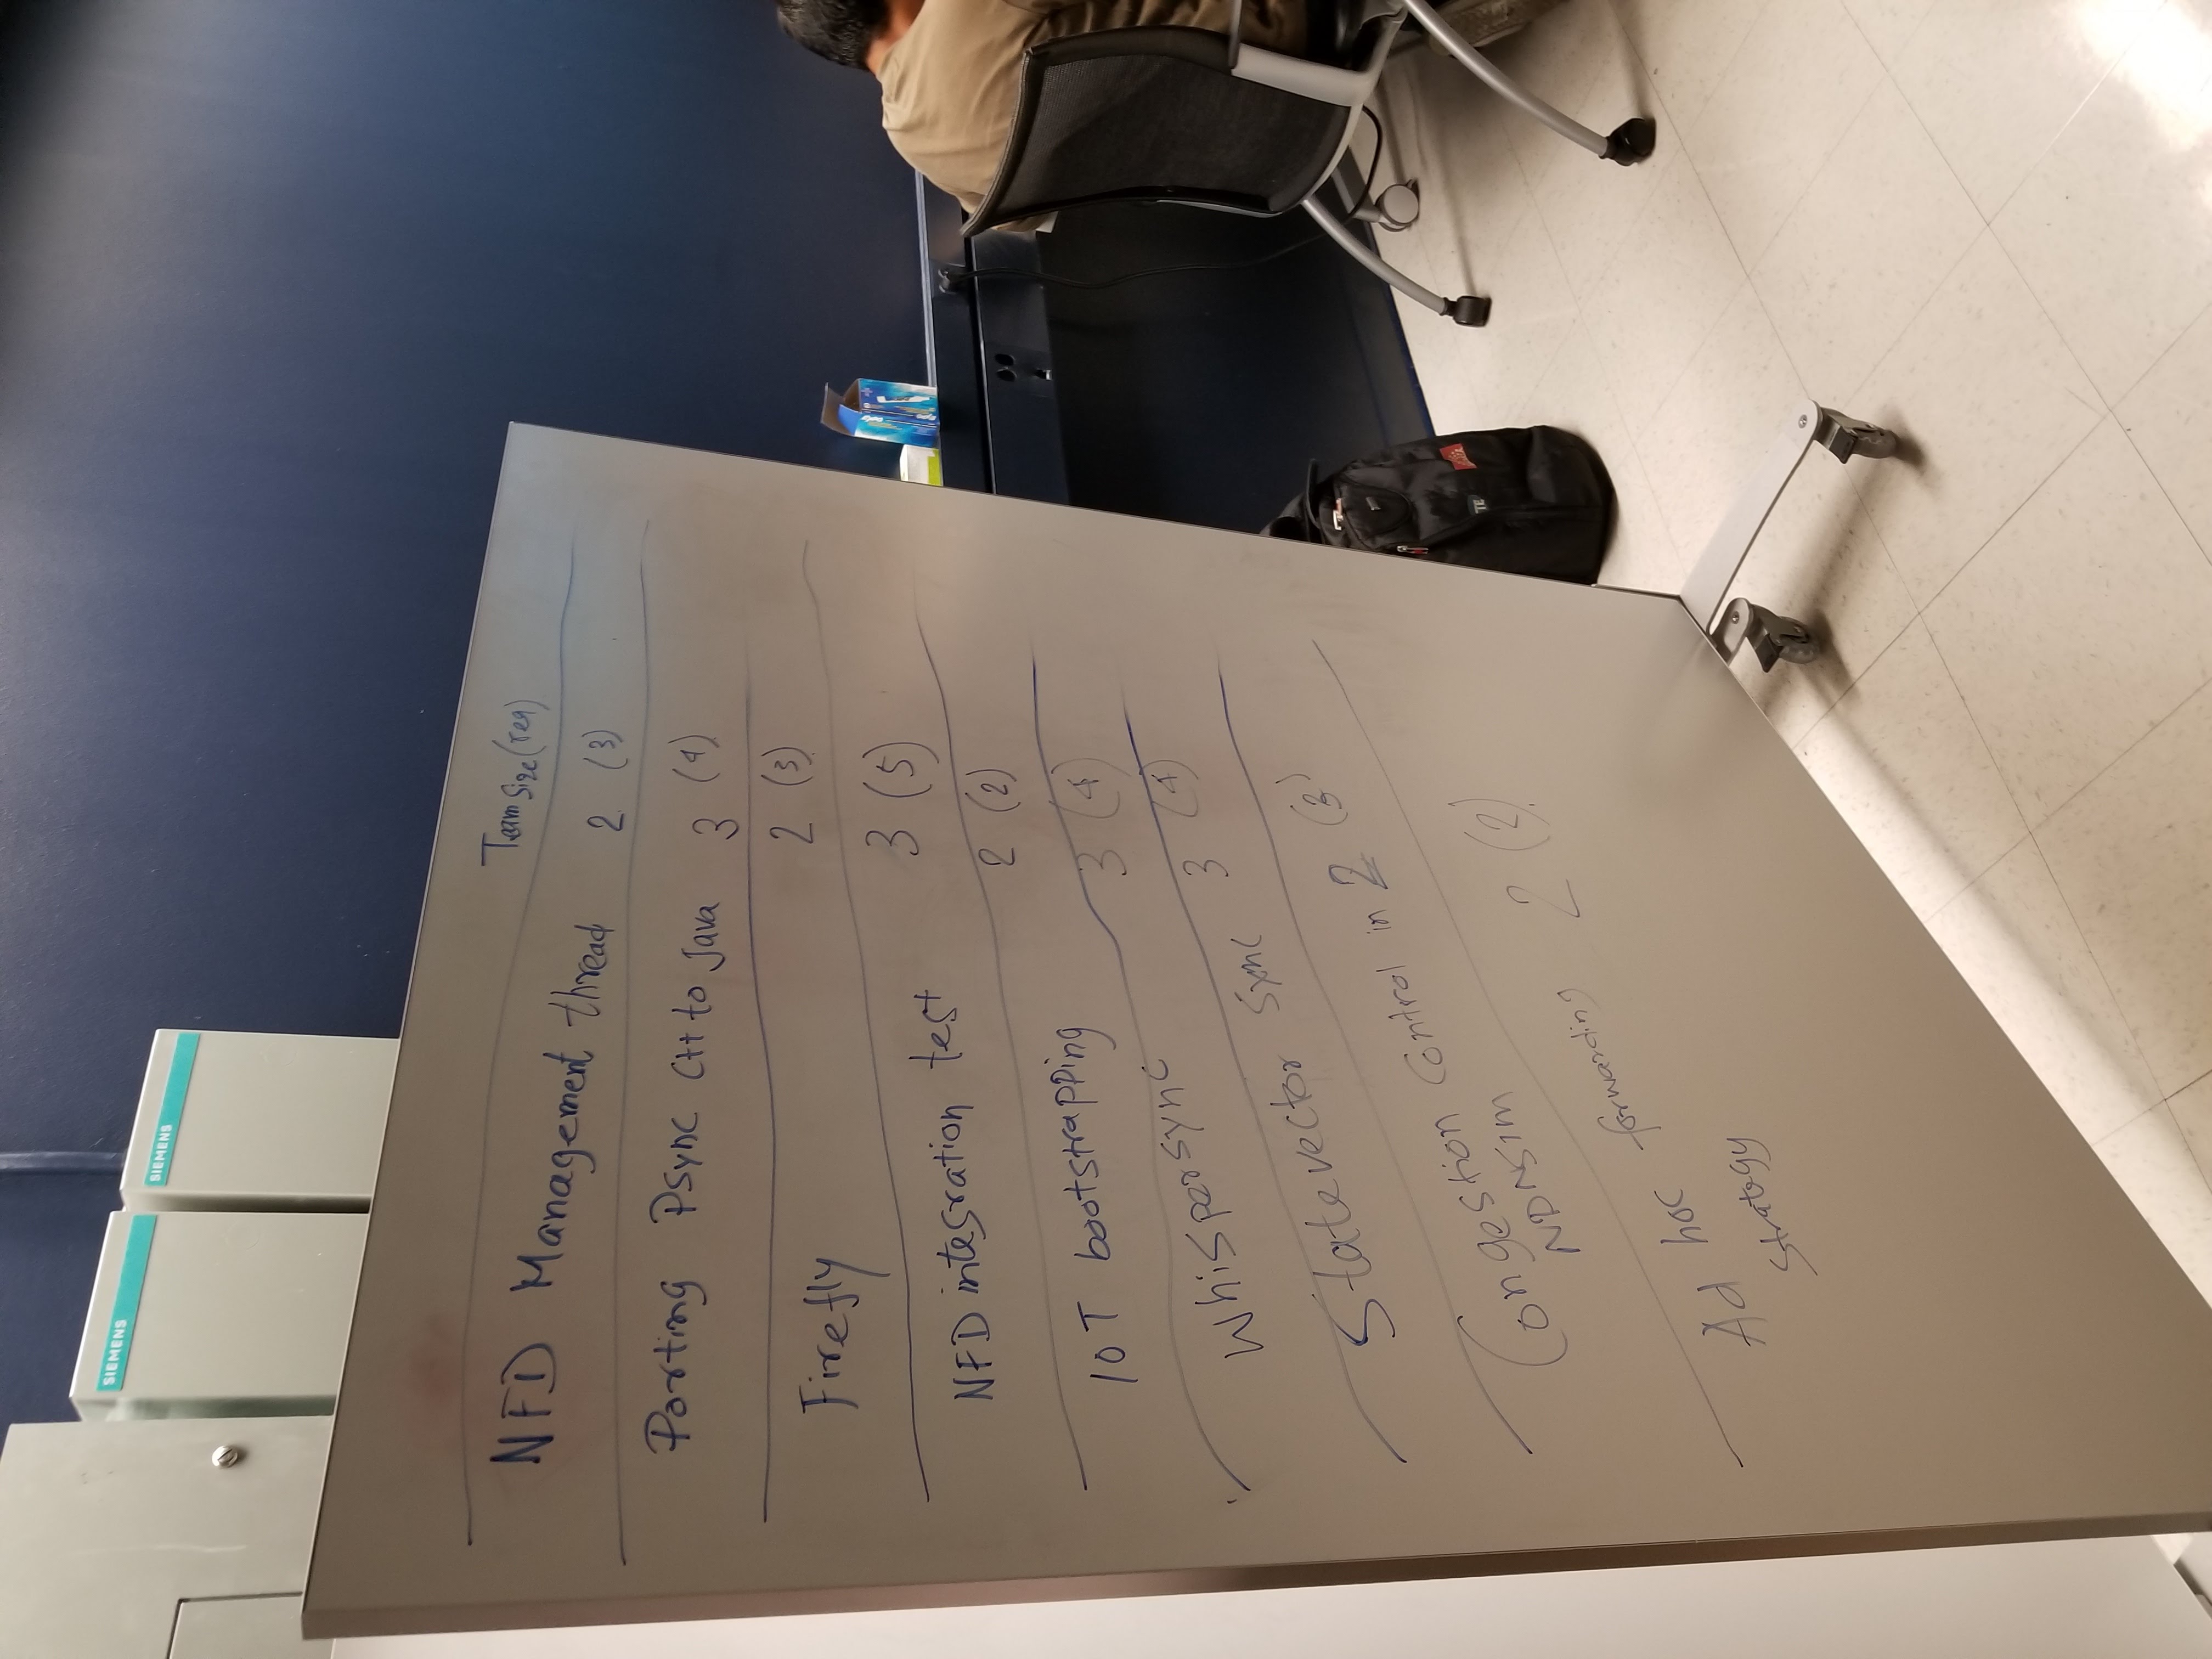 SIEMENS
SIEMENS
Team Size (req)
NFD Management thread 2 (3)
Porting PSync C++ to Java 3 (4)
Firefly 2 (3)
NFD integration test 3 (5)
IOT bootstrapping 2 (2)
Whispersync 3 (4)
Statevector Sync 3 (4)
Congestion Control in 2 (3)
NDNSIM
Ad hoc forwarding 2 (2)
Strategy